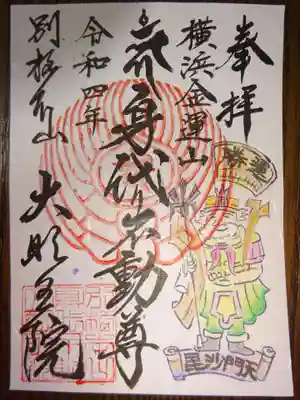 奉拝
横浜金運山
身代り不動尊
令和四年
別格本山
大明王院
勝運
毘沙門天